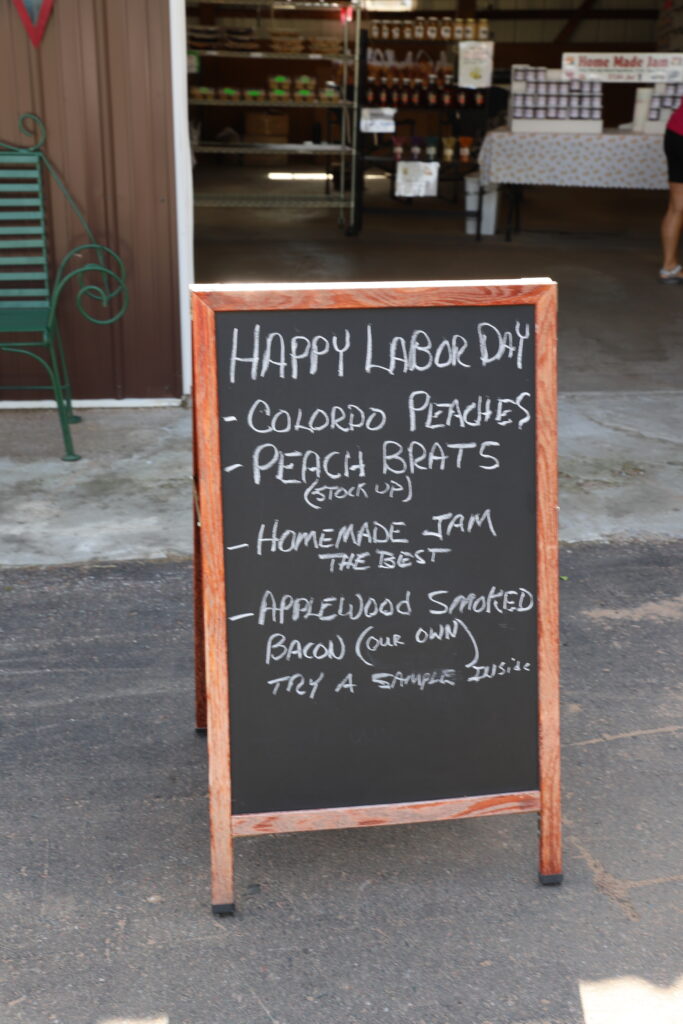 Home Made Jam
HAPPY LABOR DAY
- COLORDO PEACHES
- PEACH BRATS
(STOCK UP)
- HOMEMADE JAM
THE BEST
- APPLEWOOD SMOKED
BACON (OUR OWN)
TRY A SAMPLE INSIDE